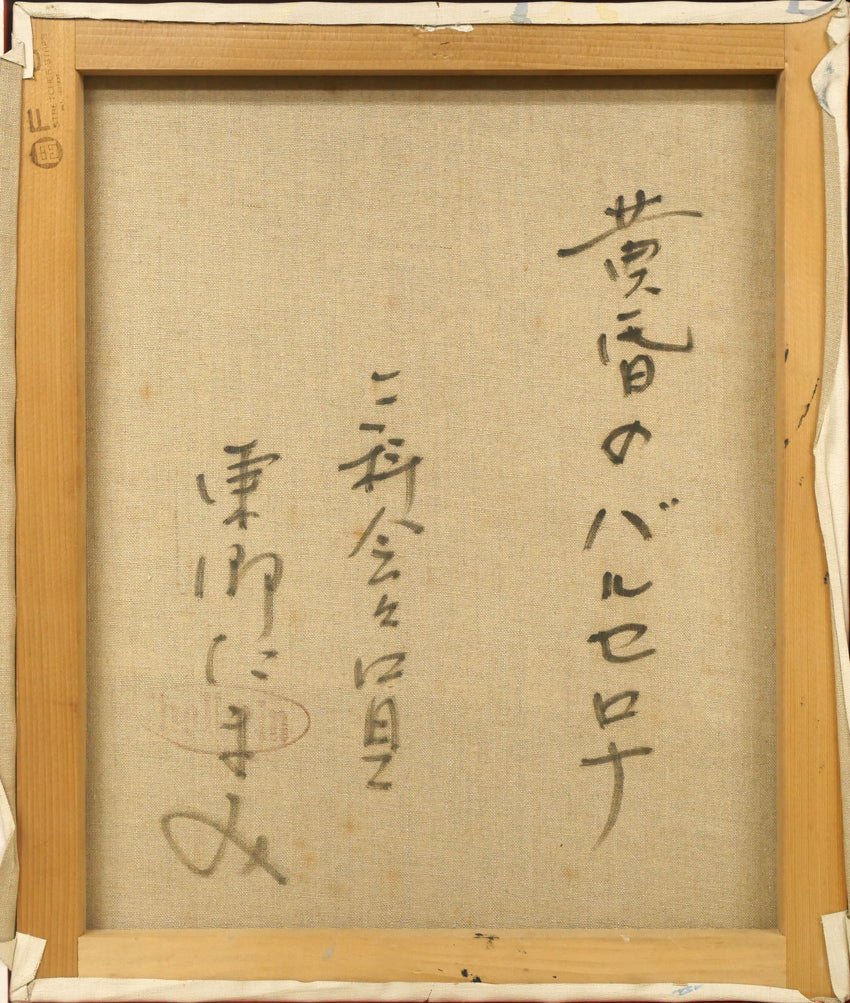 黄昏のバルセロナ
二科会々員
東郷たまみ
holbein
F